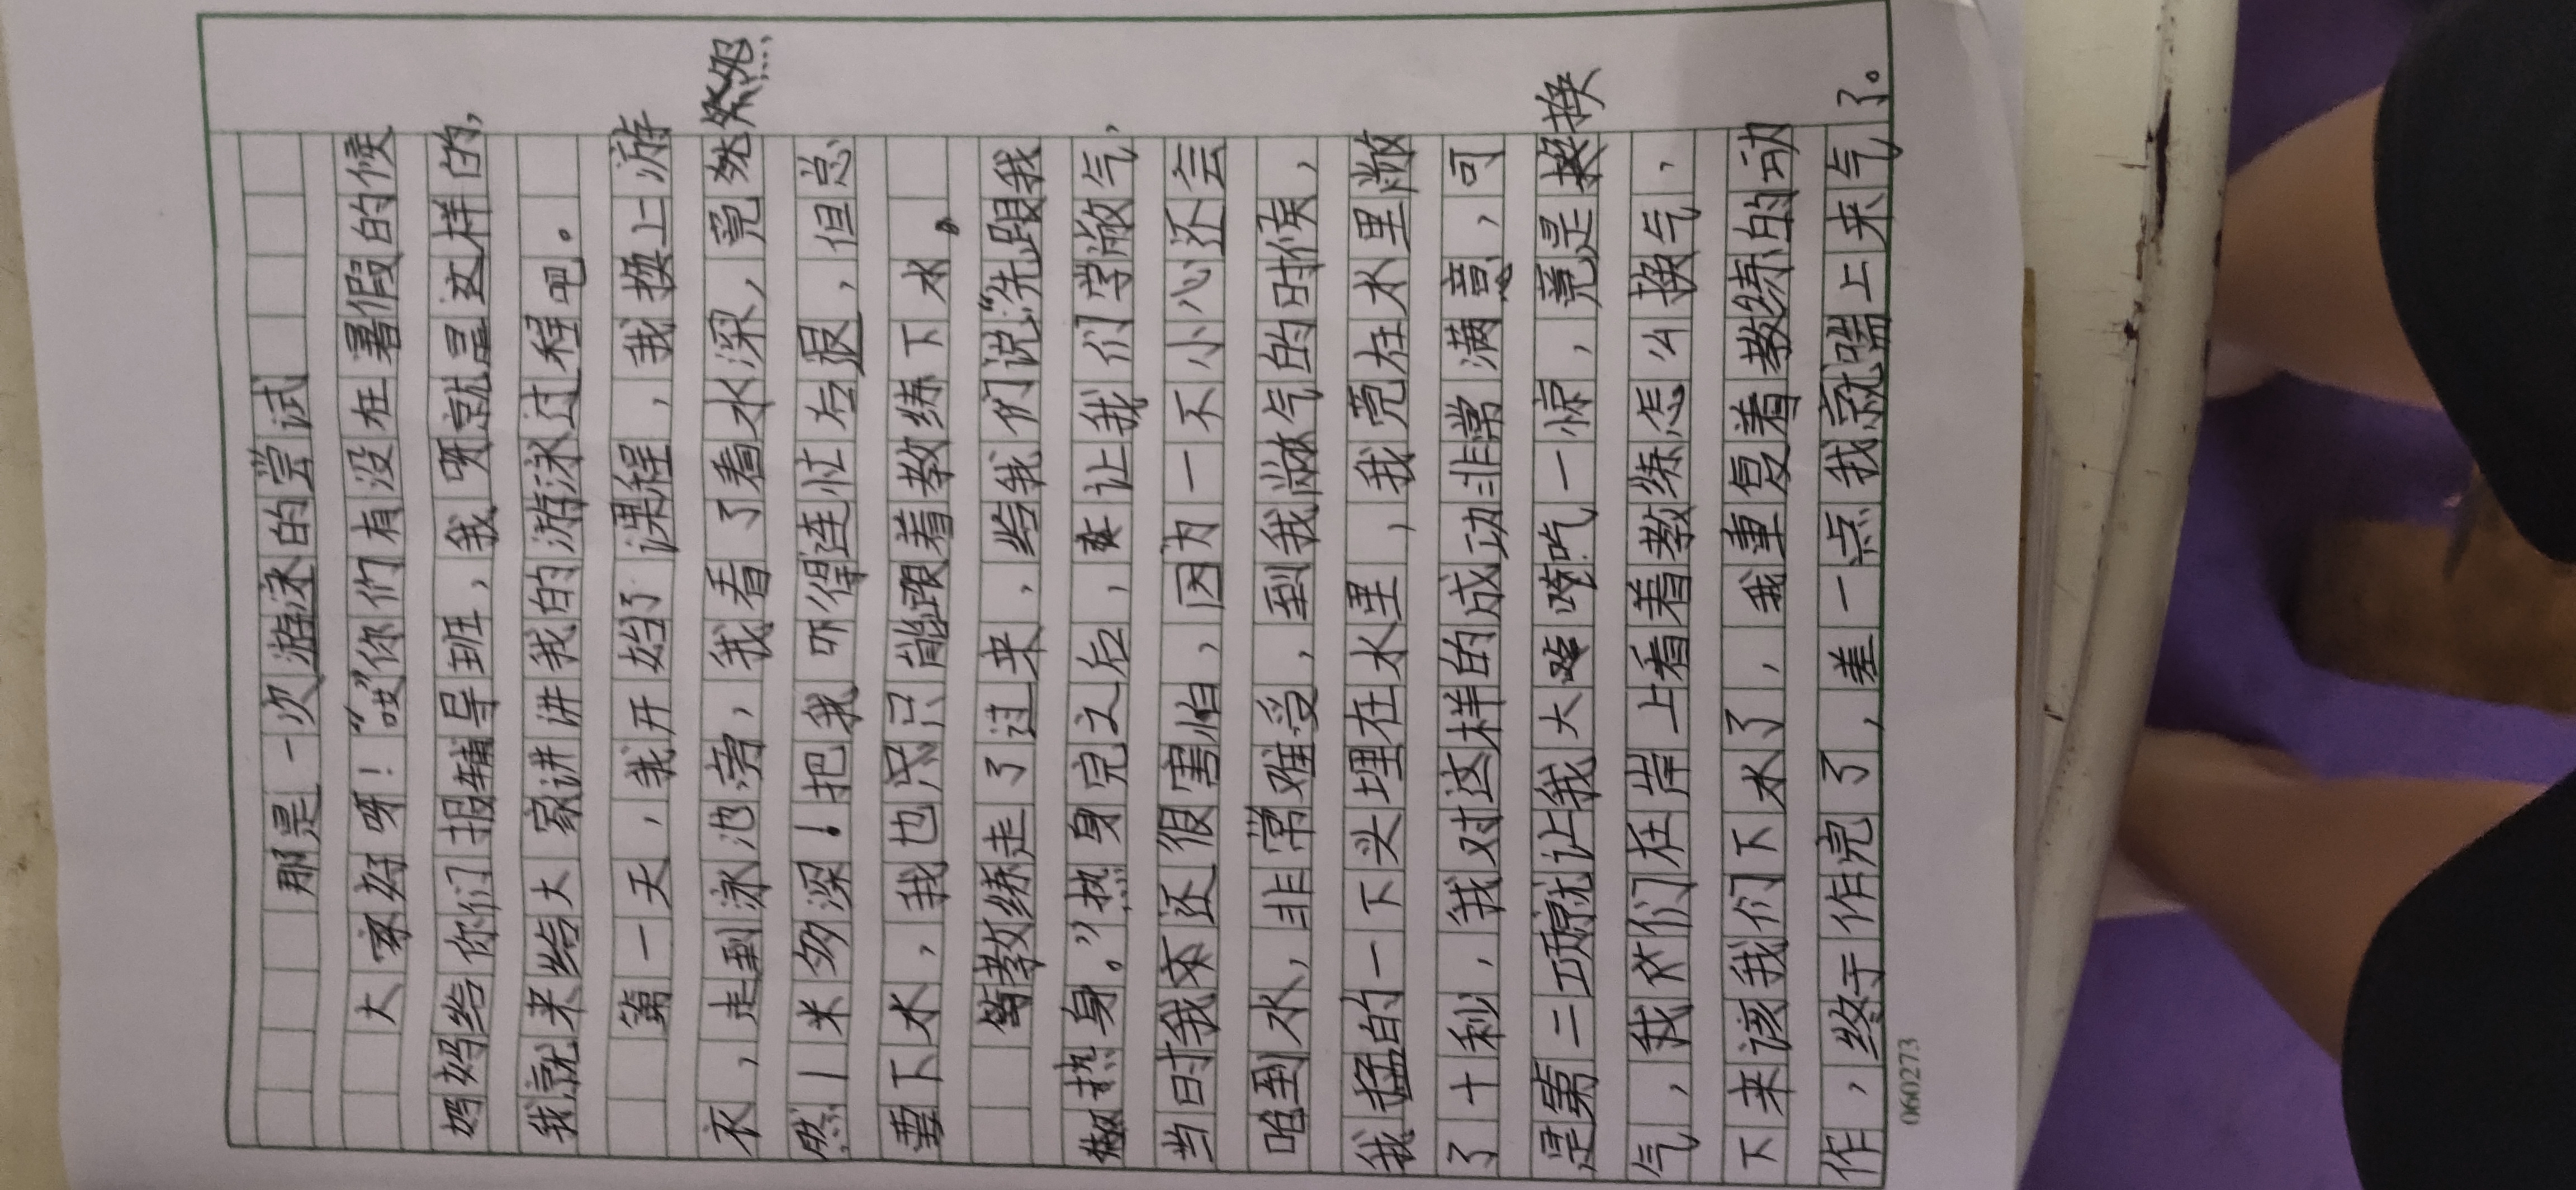 那是一次游泳的尝试
大家好呀！“哎”你们有没在暑假的候
妈妈给你们报辅导班，我呀就是这样的，
我就来给大家讲讲我的游泳过程吧。
第一天，我开始了课程，我换上游
衣，走到泳池旁，我看了看水深，竟然
然1米多深！把我吓得连忙后退，但总
要下水，我也只只能跟着教练下水。
等教练走了过来，给我们说“先跟我
做热身。”热身完之后，让我们学憋气，
当时我还很害怕，因为一不小心还会
呛到水，非常难受，到我憋气的时候，
我猛的一下头埋在水里，我竟在水里憋
了十秒，我对这样的成功非常满意，可
是第二项就让我大吃一惊，竟是换
气，我们在岸上看着教练怎么换气，
下来该我们下水了，我重复着教练的动
作，终于作完了，差一点我就喘上来气了。
060273